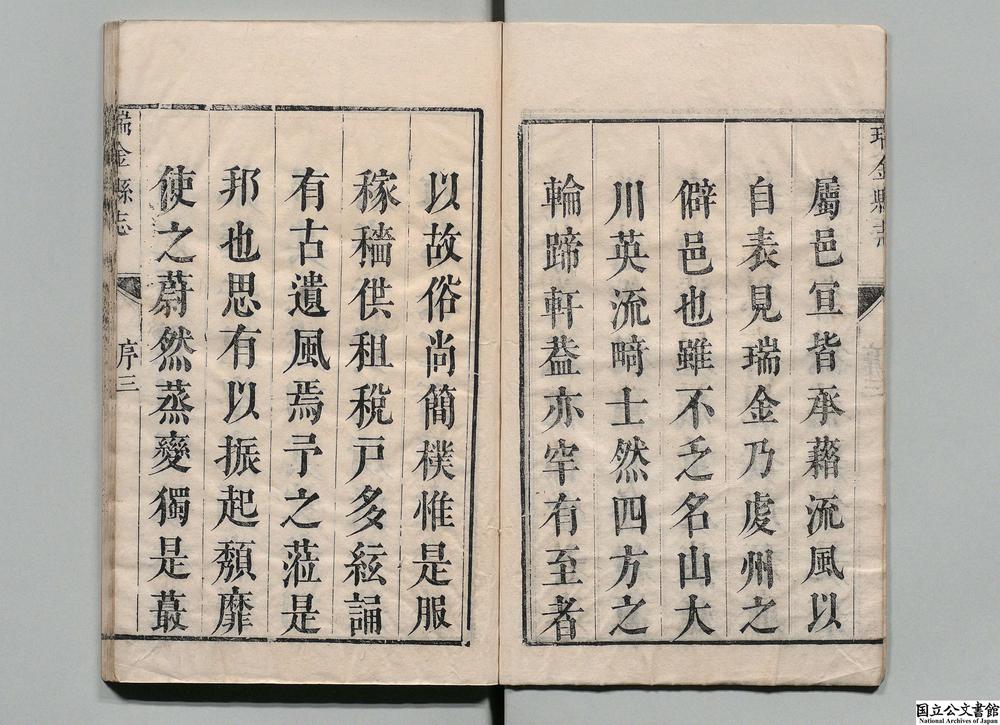 瑞金縣志
屬邑宜皆承藉流風以
自表見瑞金乃虔州之
僻邑也雖不乏名山大
川英流畸士然四方之
輪蹄軒葢亦罕有至者
以故俗尚簡樸惟是服
稼穡供租稅戸多絃誦
有古遺風焉予之蒞是
邦也思有以振起頽靡
使之蔚然蒸變獨是蕞
瑞金縣志
序三
国立公文書館
National Archives of Japan